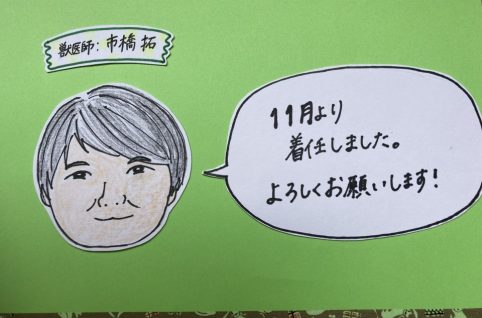 獣医師:市橋 拓
11月より
着任しました。
よろしくお願いします!